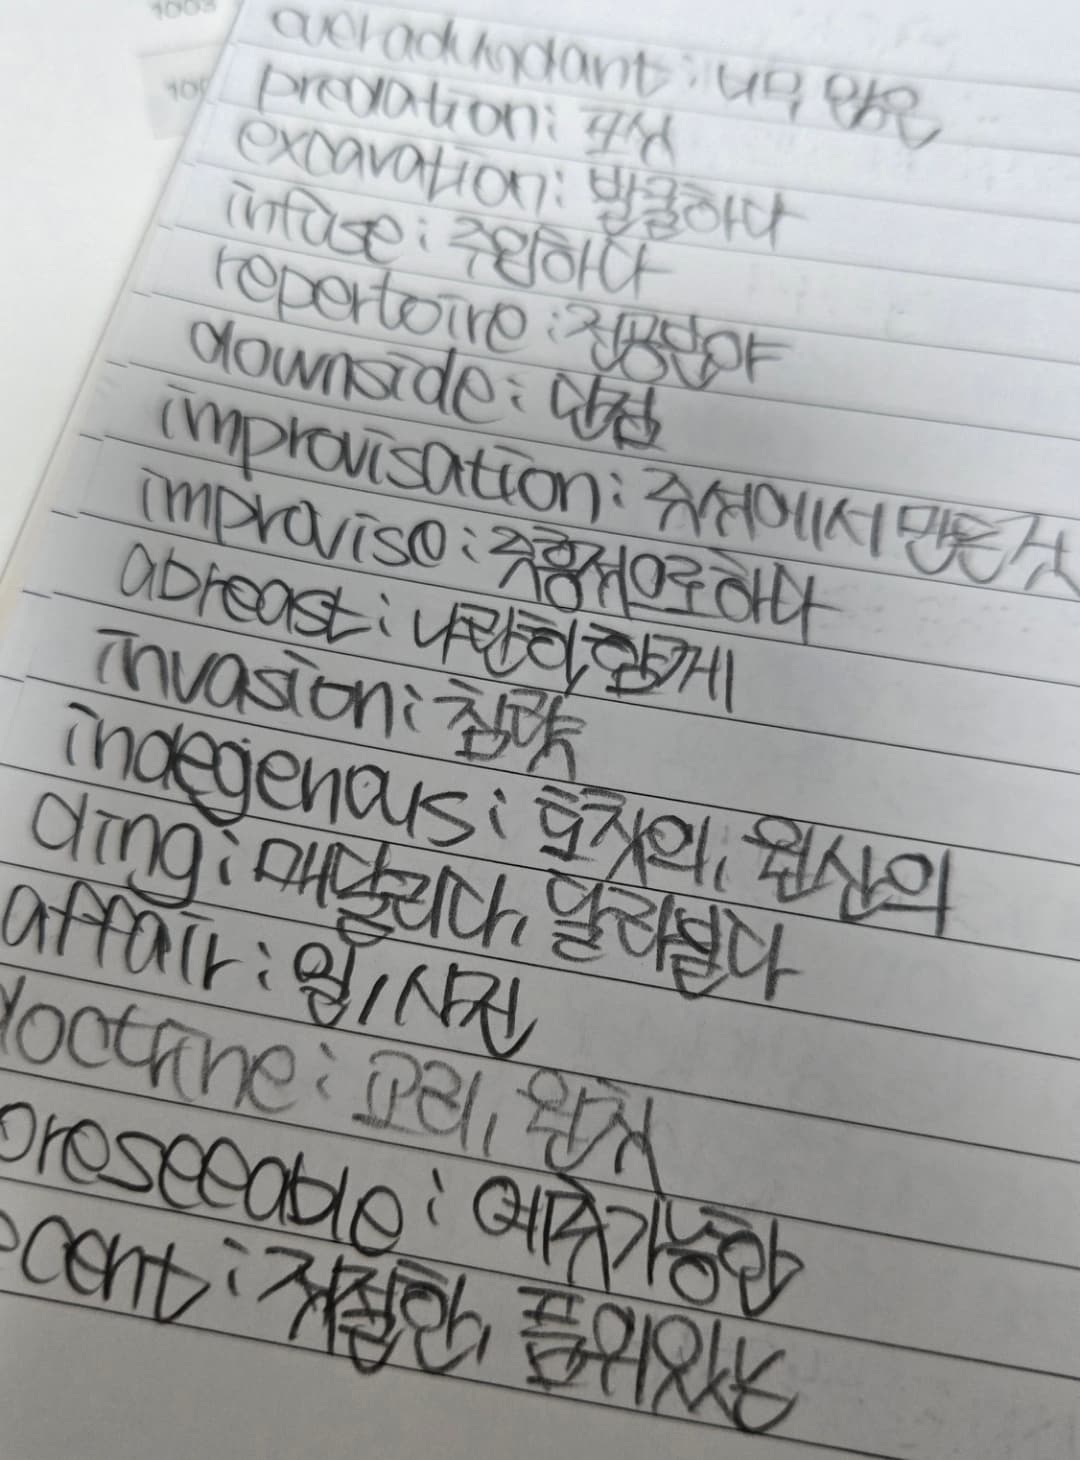 1003
100
overadundant : 너무 많은
predation : 포식
excavation : 발굴하다
infuse : 주입하다
repertoire : 전공분야
downside : 단점
improvisation : 즉석에서 만든 것
improvise : 즉흥적으로 하다
abreast : 나란히, 함께
invasion : 침략
indegenous : 토착의, 원산의
cling : 매달리다, 달라붙다
affair : 일, 사건
doctrine : 교리, 원칙
oreseeable : 예측가능한
ecent : 적절한, 품위있는